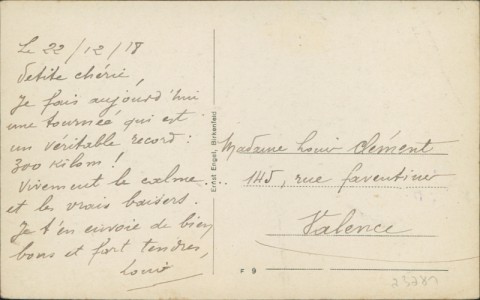 Le 22/12/18
Petite chérie,
Je fais aujourd'hui
une tournée qui est
un véritable record :
300 Kilom !
Vivement le calme...
et les vrais baisers.
Je t'en envoie de bien
bons et fort tendres,
Louis
Ernst Engel, Birkenfeld
Madame Louis Clément
145, rue faventines
Valence
F 9